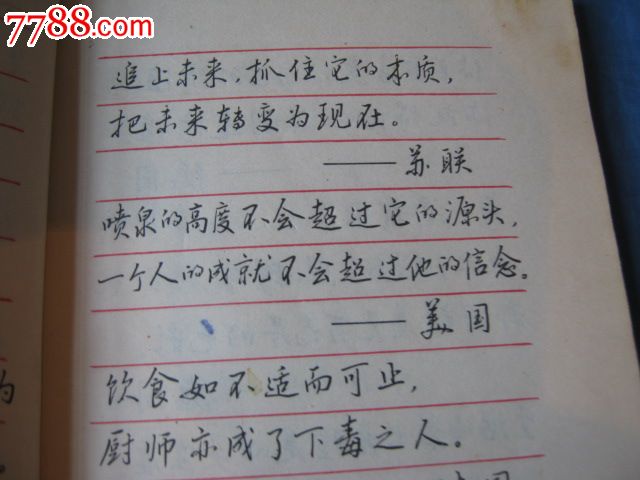 7788.com
追上未来，抓住它的本质，
把未来转变为现在。
——苏联
喷泉的高度不会超过它的源头，
一个人的成就不会超过他的信念。
——美国
饮食如不适而可止，
厨师亦成了下毒之人。
的
。
国